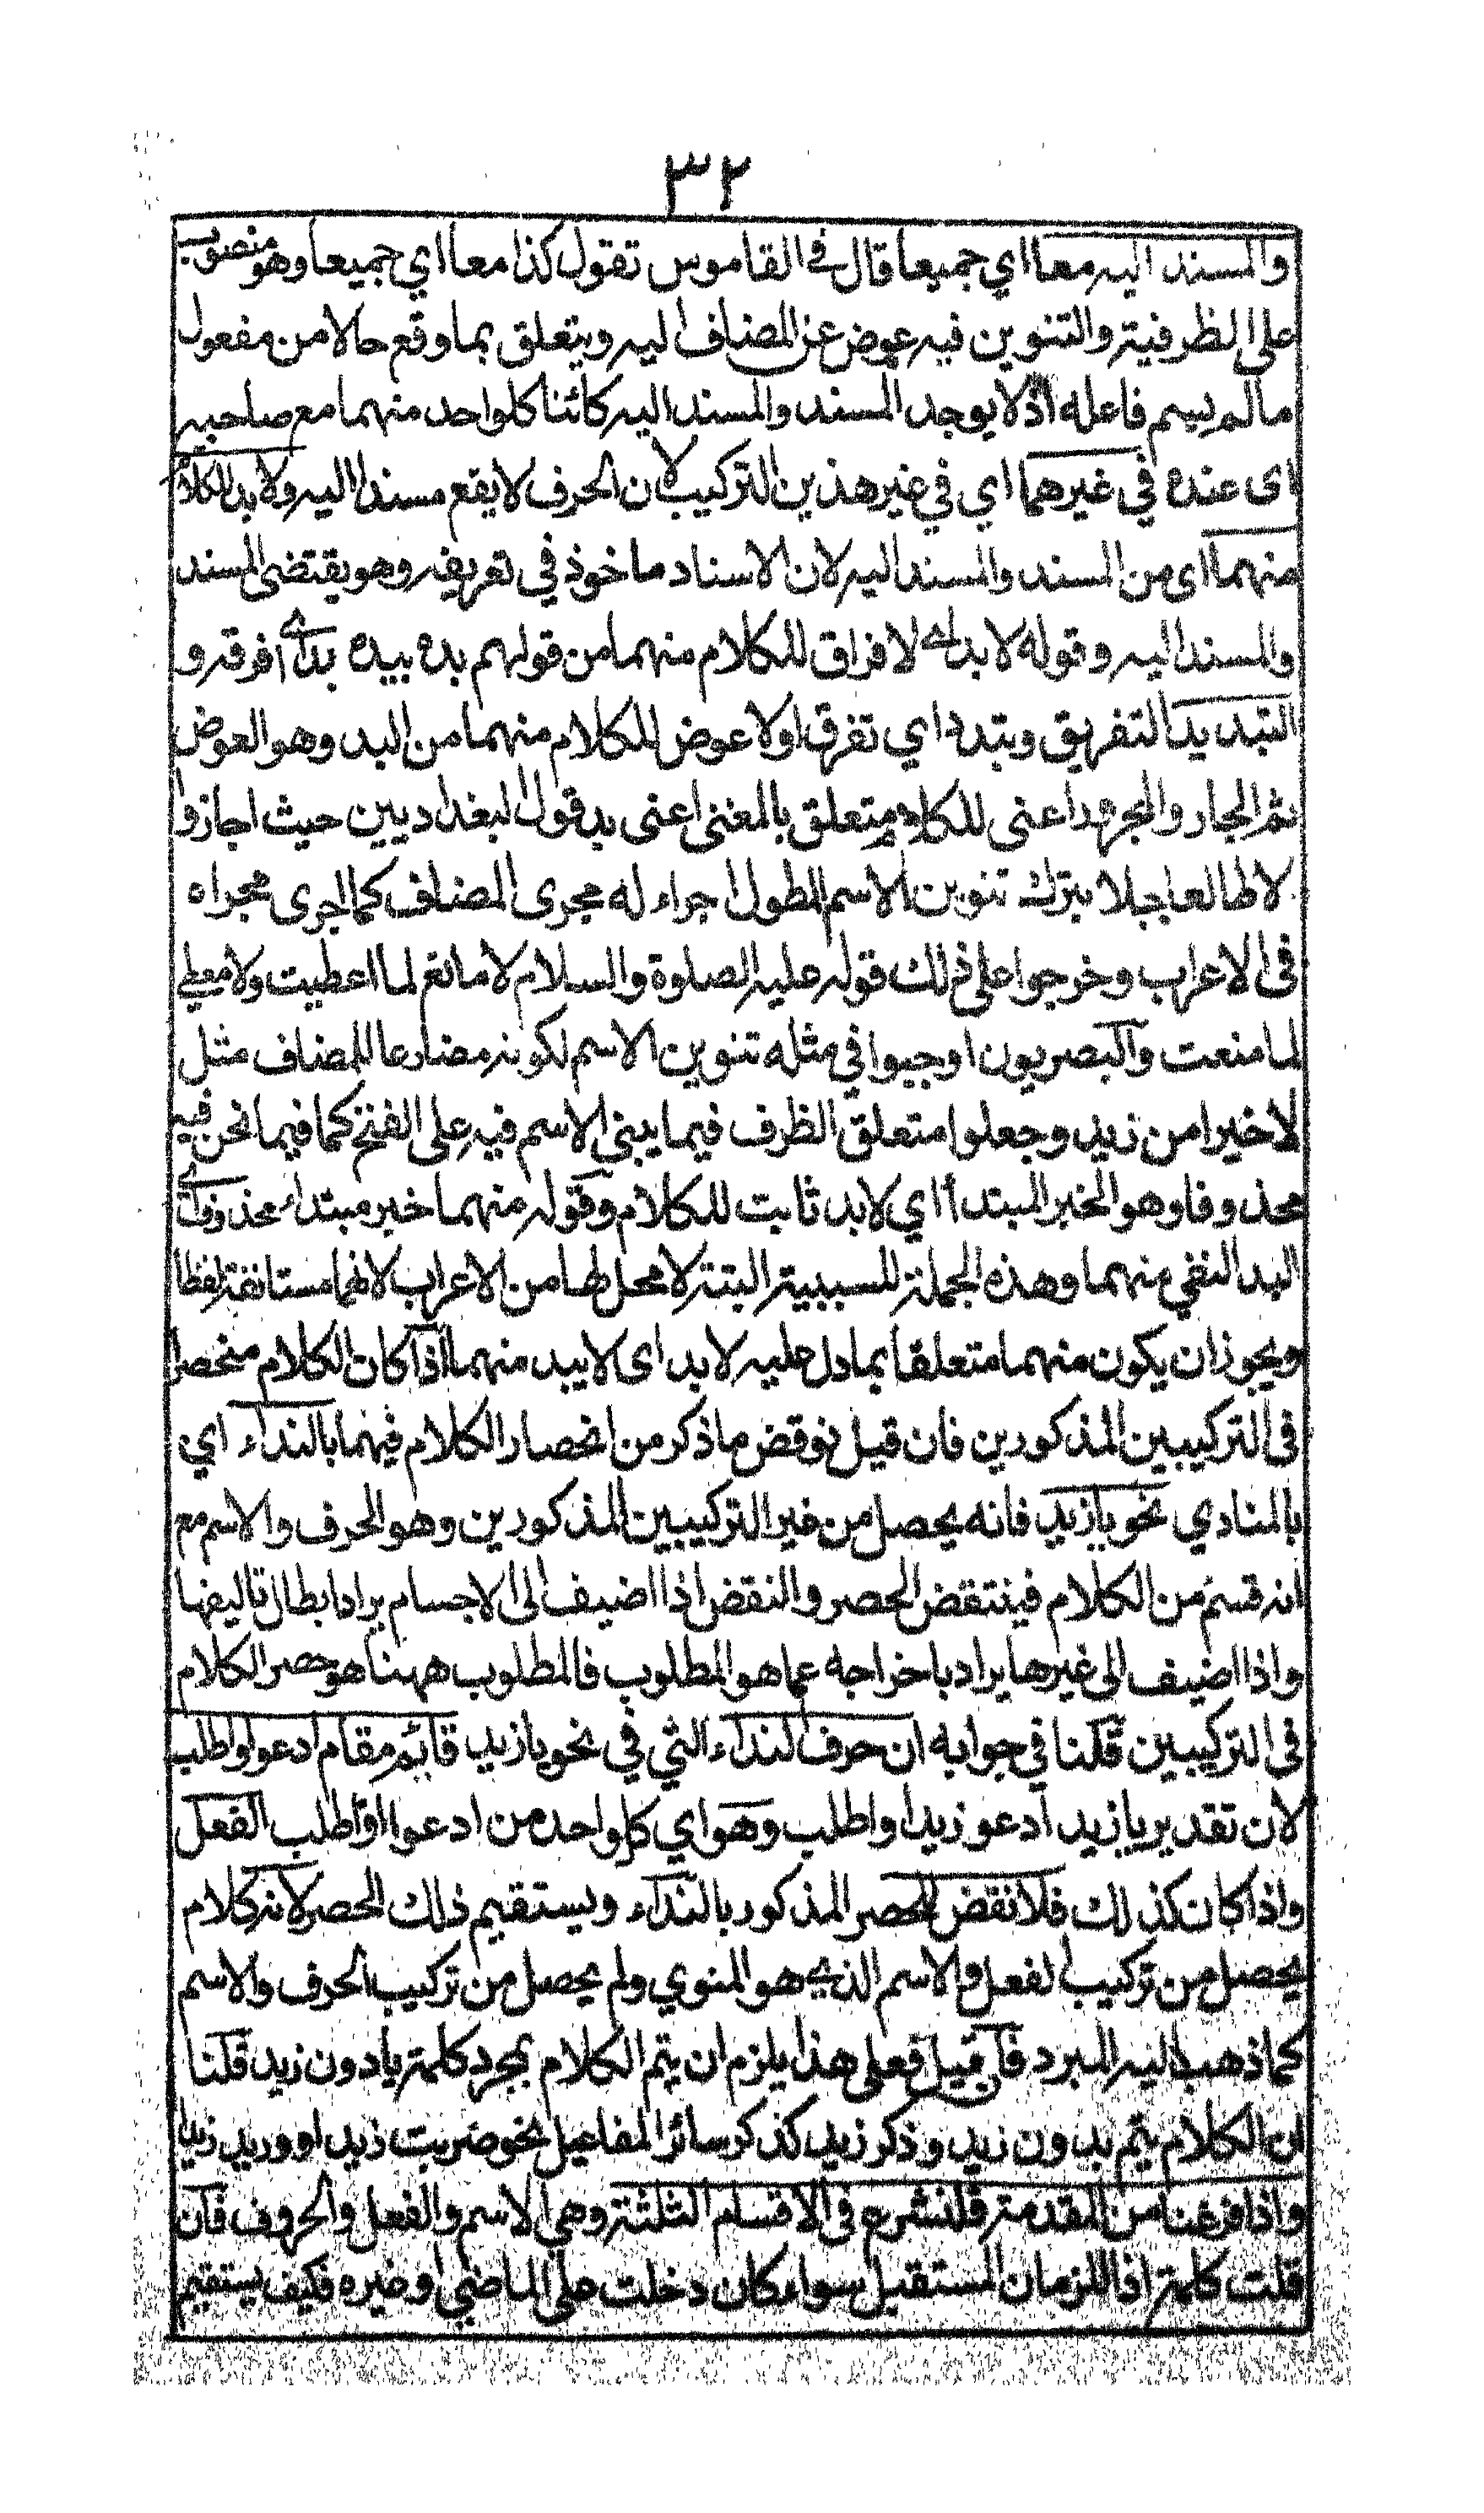 ٣٢
والمسند اليه معا اي جميعا قال في القاموس تقول كذا معا اي جميعا وهو منصوب
على الظرفية والتنوين فيه عوض عن المضاف اليه ويتعلق بما وقع حالا من مفعول
مالم يسم فاعله اذ لا يوجد المسند والمسند اليه كائنا كلواحد منهما مع صاحبه
اى عنده في غيرهما اي في غير هذين التركيب لان الحرف لا يقع مسندا اليه ولا بد للكلام
منهما اى من المسند والمسند اليه لان الاسناد ماخوذ في تعريفه وهو يقتضى المسند
والمسند اليه وقوله لا بد اى لا فراق للكلام منهما من قولهم بده يبده بدا اى افرقه و
التبديد التفريق وتبدد اي تفرق اولا عوض للكلام منهما من البد وهو العوض
ثم الجار والمجرور اعنى للكلام متعلق بالمغنى اعنى بد قول البغداديين حيث اجازوا
لا طالعا جبلا بترك تنوين الاسم المطول اجراء له مجرى المضاف كما اجرى مجراه
فى الاعراب وخرجوا على ذلك قوله عليه الصلوة والسلام لا مانع لما اعطيت ولا معطي
لما منعت والبصريون اوجبوا في مثله تنوين الاسم لكونه مضارعا للمضاف مثل
لا خيرا من زيد وجعلوا متعلق الظرف فيما يبنى الاسم فيه على الفتح كما فيما نحن فيه
محذوفا وهو الخبر المبتدأ اي لا بد ثابت للكلام وقوله منهما خبر مبتداء محذوف اى
البد النفي منهما وهذه الجملة للسببية البتة لا محل لها من الاعراب لانها مستانفة لفظا
ويجوز ان يكون منهما متعلقا بما دل عليه لا بد اى لا يبد منهما اذا كان الكلام منحصرا
فى التركيبين المذكورين فان قيل نوقض ما ذكر من انحصار الكلام فيهما بالنداء اي
بالمنادي نحو يا زيد فانه يحصل من غير التركيبين المذكورين وهو الحرف والاسم مع
انه قسم من الكلام فينتقض الحصر والنقض اذا اضيف الى الاجسام يراد ابطال تاليفها
واذا اضيف الى غيرها يراد باخراجه عما هو المطلوب فالمطلوب ههنا هو حصر الكلام
فى التركيبين قلنا في جوابه ان حرف النداء التي في نحو يا زيد قائم مقام ادعو او اطلب
لان تقدير يا زيد ادعو زيدا واطلب وهو اي كلواحد من ادعوا او اطلب الفعل
واذا كان كذلك فلا نقض للحصر المذكور بالنداء ويستقيم ذلك الحصر لانه كلام
يحصل من تركيب الفعل والاسم الذي هو المنوي ولم يحصل من تركيب الحرف والاسم
كما ذهب اليه المبرد فان قيل فعلى هذا يلزم ان يتم الكلام بمجرد كلمة يا دون زيد قلنا
ان الكلام يتم بدون زيد وذكر زيد كذكر سائر المفاعيل نحو ضربت زيد او وريد زيدا
واذا فرغنا من المقدمة فلنشرع فى الاقسام الثلثة وهي الاسم والفعل والحروف فان
قلت كلمة اذا للزمان المستقبل سواء كان دخلت على الماضي او غيره فكيف يستقيم